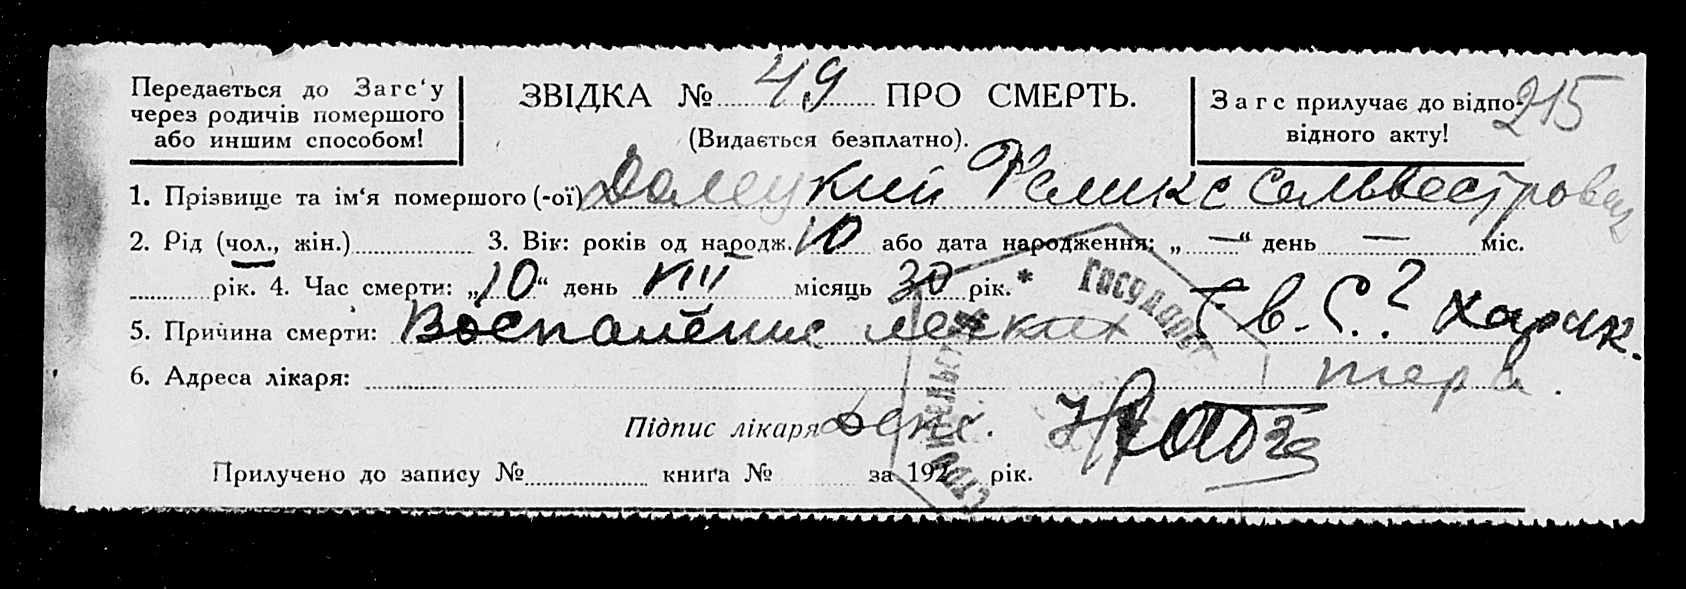 Передається до Загс‘у
через родичів помершого
або иншим способом!
ЗВІДКА № 49 ПРО СМЕРТЬ.
(Видається безплатно).
Загс прилучає до відпо-
відного акту!
215
1. Прізвище та ім‘я помершого (-ої) Далецкий Феликс Сельвестрович
2. Рід (чол., жін.) 3. Вік: років од народж. 10 або дата народження: „ — “ день — міс.
рік. 4. Час смерти: „10“ день VIII місяць 30 рік.
5. Причина смерти: Воспаление легких Т в. С.? харак.
тера.
6. Адреса лікаря:
Підпис лікаря
Прилучено до запису № книґа № за 192 рік.
* ГОСУДАРСТ